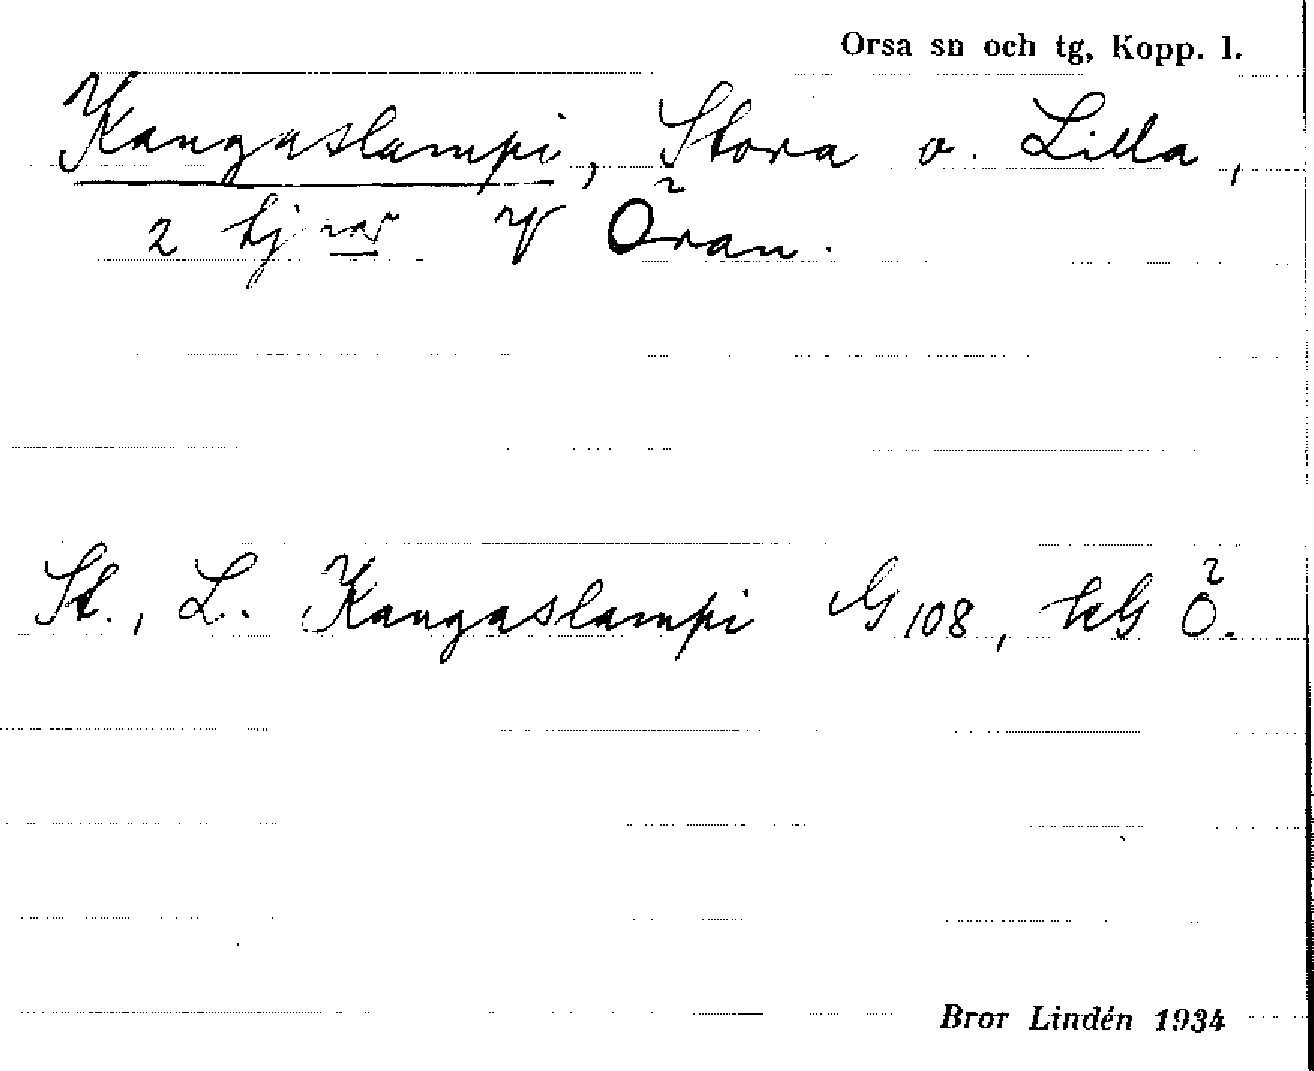 Orsa sn och tg, Kopp. l.
Kangaslampi, Stora o. Lilla,
2 tj:nar V Öran.
St., L. Kangaslampi G 108, Ö.
Bror Lindén 1934